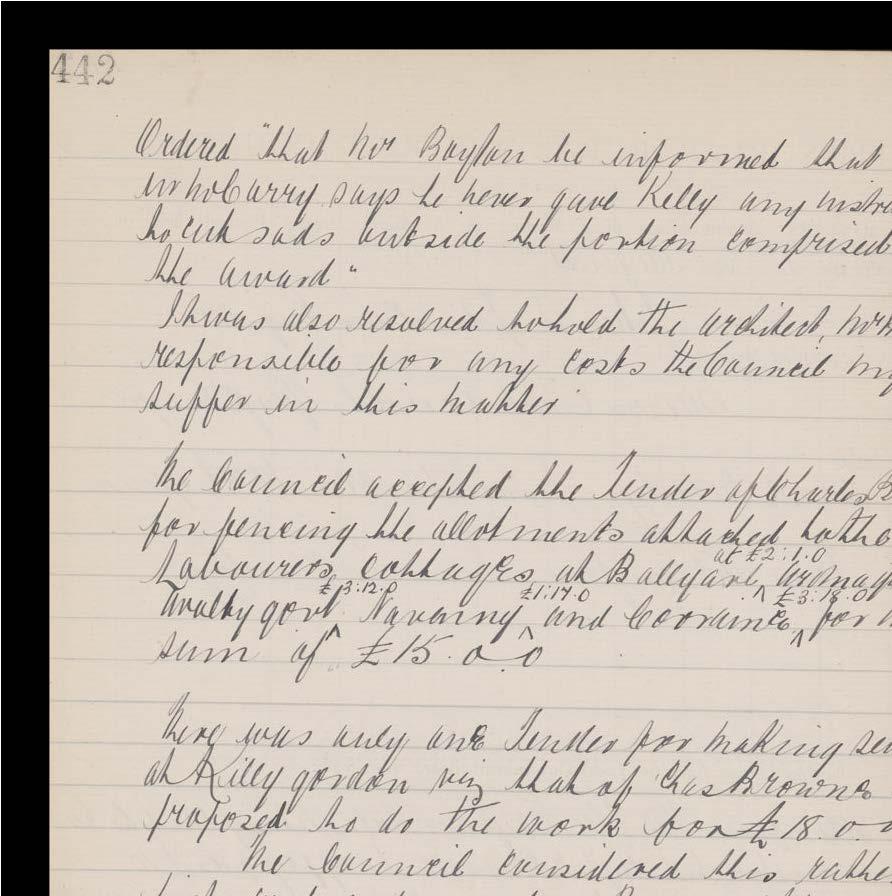 442
Ordered "that Mr Boylan be informed that
Mr McCarry says he never gave Kelly any
to cut sods outside the portion comprised
the award"
It was also resolved to hold the Architect,
responsible for any costs the Council
suffer in this matter
The Council accepted the Tender of Charles
for fencing the allotments attached to the
at £2:1.0
Labourers cottages at
£3:12.0 £1:14.0 £3:18.0
Navanny and for
sum of £15.0.0
There was only one Tender for making
at Killygordon viz that of Chas Browne
proposed to do the work for £18.0.
The Council considered this